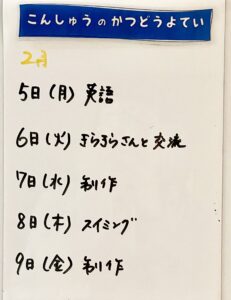 こんしゅうのかつどうよてい
2月
5日(月) 英語
6日(火) きらきらさんと交流
7日(水) 制作
8日(木) スイミング
9日(金) 制作